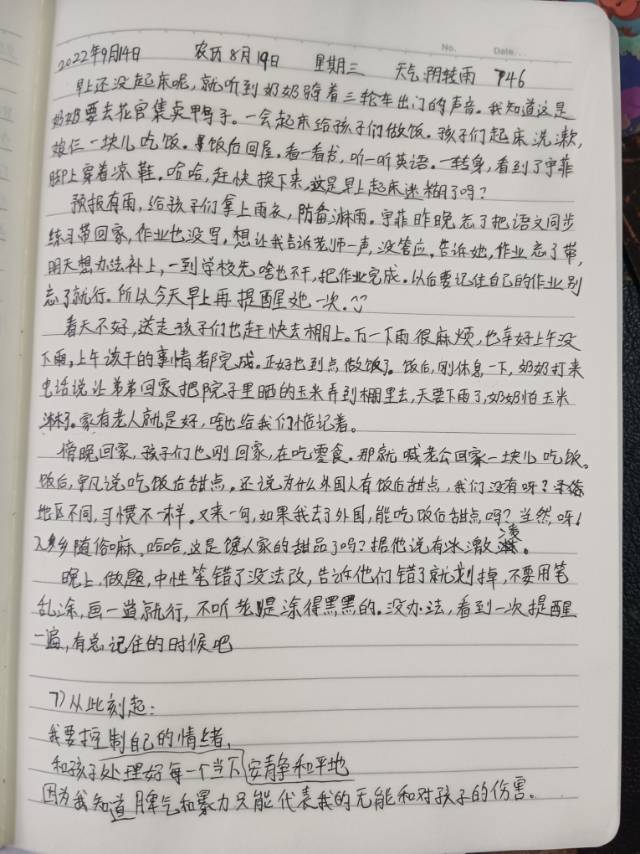 No. Date.
2022年9月14日 农历8月19日 星期三 天气阴转雨 P46
早上还没起床呢,就听到奶奶骑着三轮车出门的声音。我知道这是
奶奶要去花官集卖鸭子。一会起床给孩子们做饭。孩子们起床洗漱,
娘仨一块儿吃饭。饭后回屋。看一看书,听一听英语。一转身,看到了宇菲
脚上穿着凉鞋。哈哈,赶快换下来,这是早上起床迷糊了吗?
预报有雨,给孩子们拿上雨衣,防备淋雨。宇菲昨晚忘了把语文同步
练习带回家,作业也没写,想让我告诉老师一声,没答应。告诉她,作业忘了带,
明天想办法补上,一到学校先啥也不干,把作业完成。以后要记住自己的作业别
忘了就行。所以今天早上再提醒她一次。
看天不好,送走孩子们也赶快去棚上。万一下雨很麻烦,也幸好上午没
下雨,上午该干的事情都完成。正好也到点做饭了。饭后,刚休息一下,奶奶打来
电话说让弟弟回家把院子里晒的玉米弄到棚里去,天要下雨了,奶奶怕玉米
淋了。家有老人就是好,啥也给我们惦记着。
傍晚回家,孩子们也刚回家,在吃零食。那就喊老公回家一块儿吃饭。
饭后,宇凡说吃饭后甜点。还说为什么外国人有饭后甜点,我们没有呀?
地区不同,习惯不一样。又来一句,如果我去了外国,能吃饭后甜点吗?当然呀!
入乡随俗嘛,哈哈,这是馋人家的甜品了吗?据他说有冰激凌。
晚上,做题,中性笔错了没法改,告诉他们错了就划掉,不要用笔
乱涂,画一道就行,不听老是涂得黑黑的。没办法,看到一次提醒
一遍,有总记住的时候吧
7)从此刻起:
我要控制自己的情绪,
和孩子处理好每一个当下安静和平地
因为我知道脾气和暴力只能代表我的无能和对孩子的伤害。